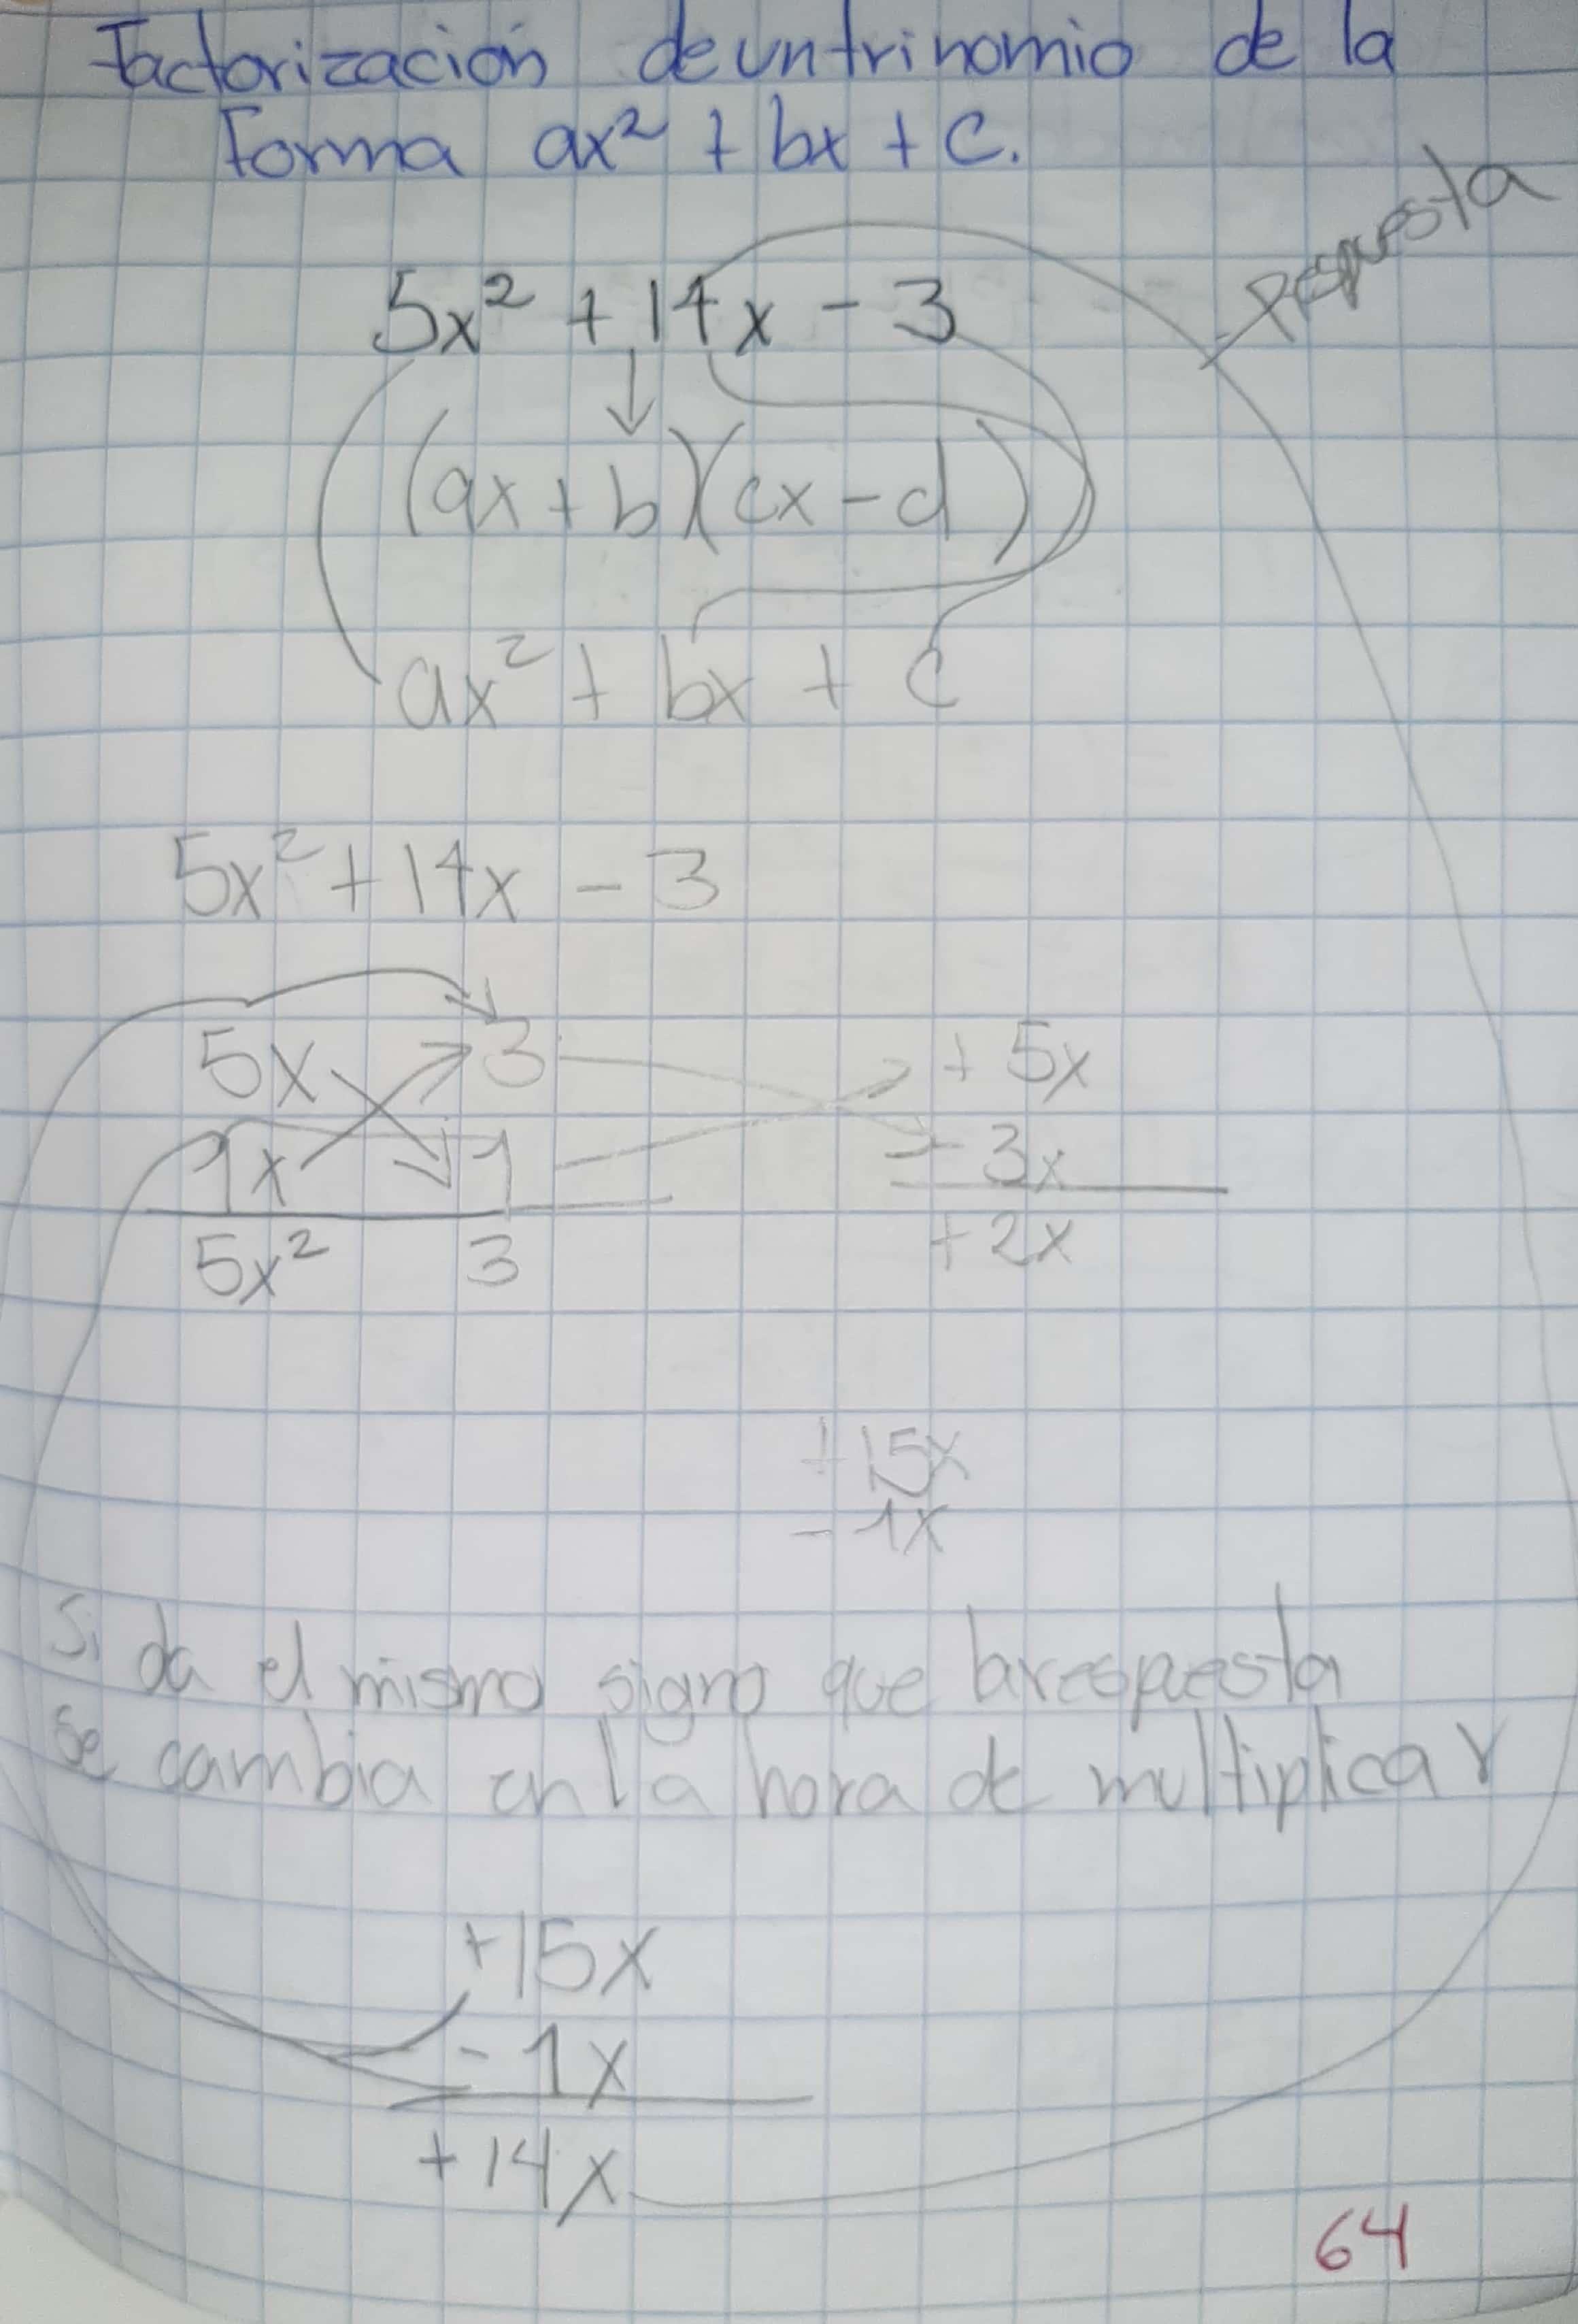 Factorización de un trinomio de la
Forma ax² + bx + c.
respuesta
5x² + 14x - 3
(ax + b)(cx - d)
ax² + bx + c
5x² + 14x - 3
5x 3 + 5x
1x 1 - 3x
5x² 3 + 2x
+15x
- 1x
Si da el mismo signo que la respuesta
se cambia en la hora de multiplicar
+15x
- 1x
+14x
64